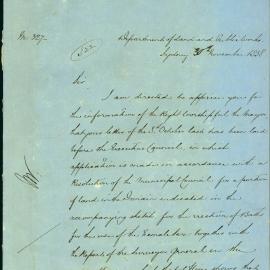 No. 327
522
Department of Land and Public Works
Sydney 30th November 1858
Sir
I am directed to apprise you for
the information of the Right Worshipful the Mayor
that your letter of the 5th October last has been laid
before the Executive Council, in which
application is made in accordance with a
Resolution of the Municipal Council for a portion
of land in the Domain indicated in the
accompanying sketch for the erection of Baths
for the use of the Females together with
the Reports of the Surveyor General on the